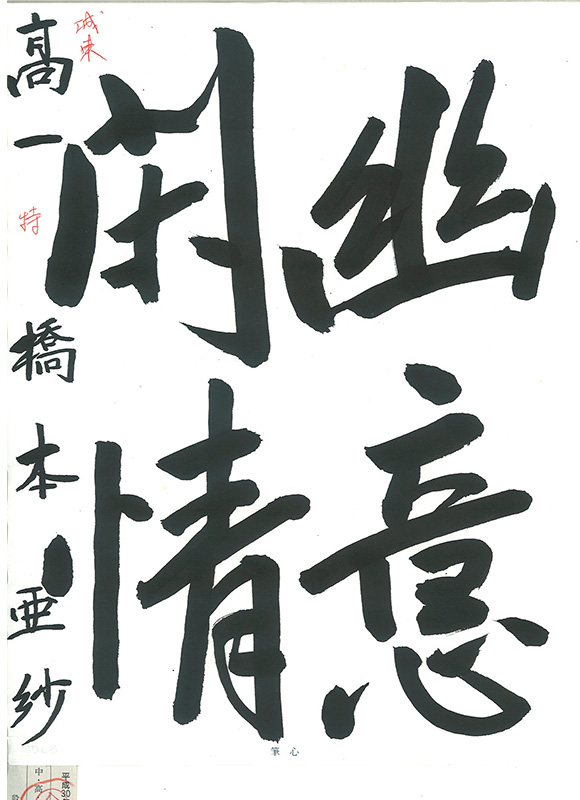 幽意
閑情
城東
高一 橋本亜紗
特
筆心
平成30年
中・高
段